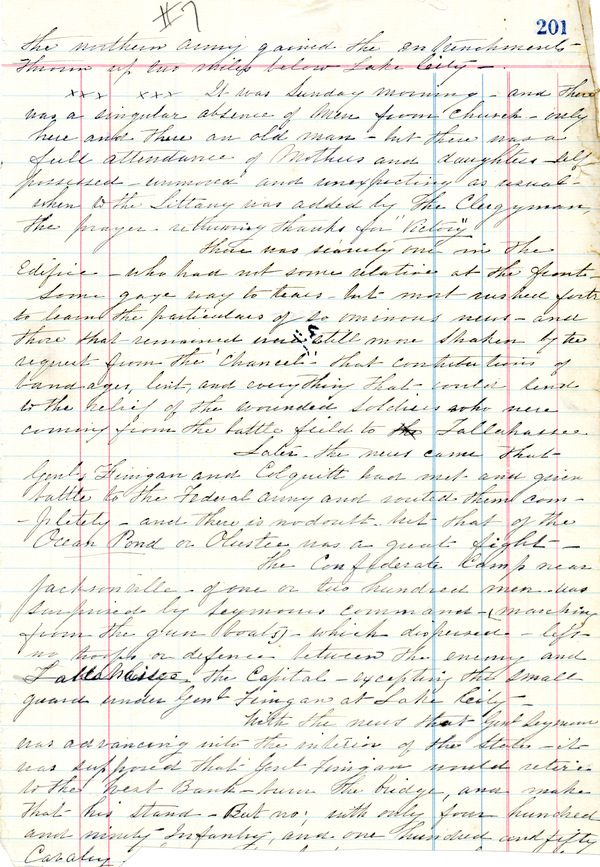 #7
201
the northern army gained the entrenchments
thrown up two miles below Lake City -
xxx xxx It was Sunday morning - and there
was a singular absence of men from church - only
here and there an old man - but there was a
full attendance of Mothers and daughters - self
possessed - unmoved and unexpecting as usual -
when to the Littany was added by the Clergyman,
the prayer returning thanks for "Victory"
there was scarcely one in the
Edifice - who had not some relative at the front -
Some gave way to tears - but most rushed forth
to learn the particulars of so ominous news - and
those that remained were still more shaken by the
request from the Chancel - that contributions of
bandages, lint, and everything that could tend
to the relief of the wounded soldiers who were
coming from the battle field to Tallahassee
Later the news came that
Genls Finigan and Colquitt had met and given
battle to the Federal army and routed them com-
-pletely - and there is no doubt but that of the
Ocean Pond or Olustee was a great fight -
The Confederate Camp near
Jacksonville - of one or two hundred men was
surprised by Seymours command - (marching
from the gun boats) - which dispersed - left
no troops or defence between the enemy and
Tallahassee the Capital - excepting the small
guard under Genl Finigan at Lake City -
With the news that Genl Seymour
was advancing into the interior of the State - it
was supposed that Genl Finigan would retire
to the next Bank - burn the bridge, and make
that his stand - But no; with only four hundred
and ninety Infantry, and one hundred and fifty
Cavalry